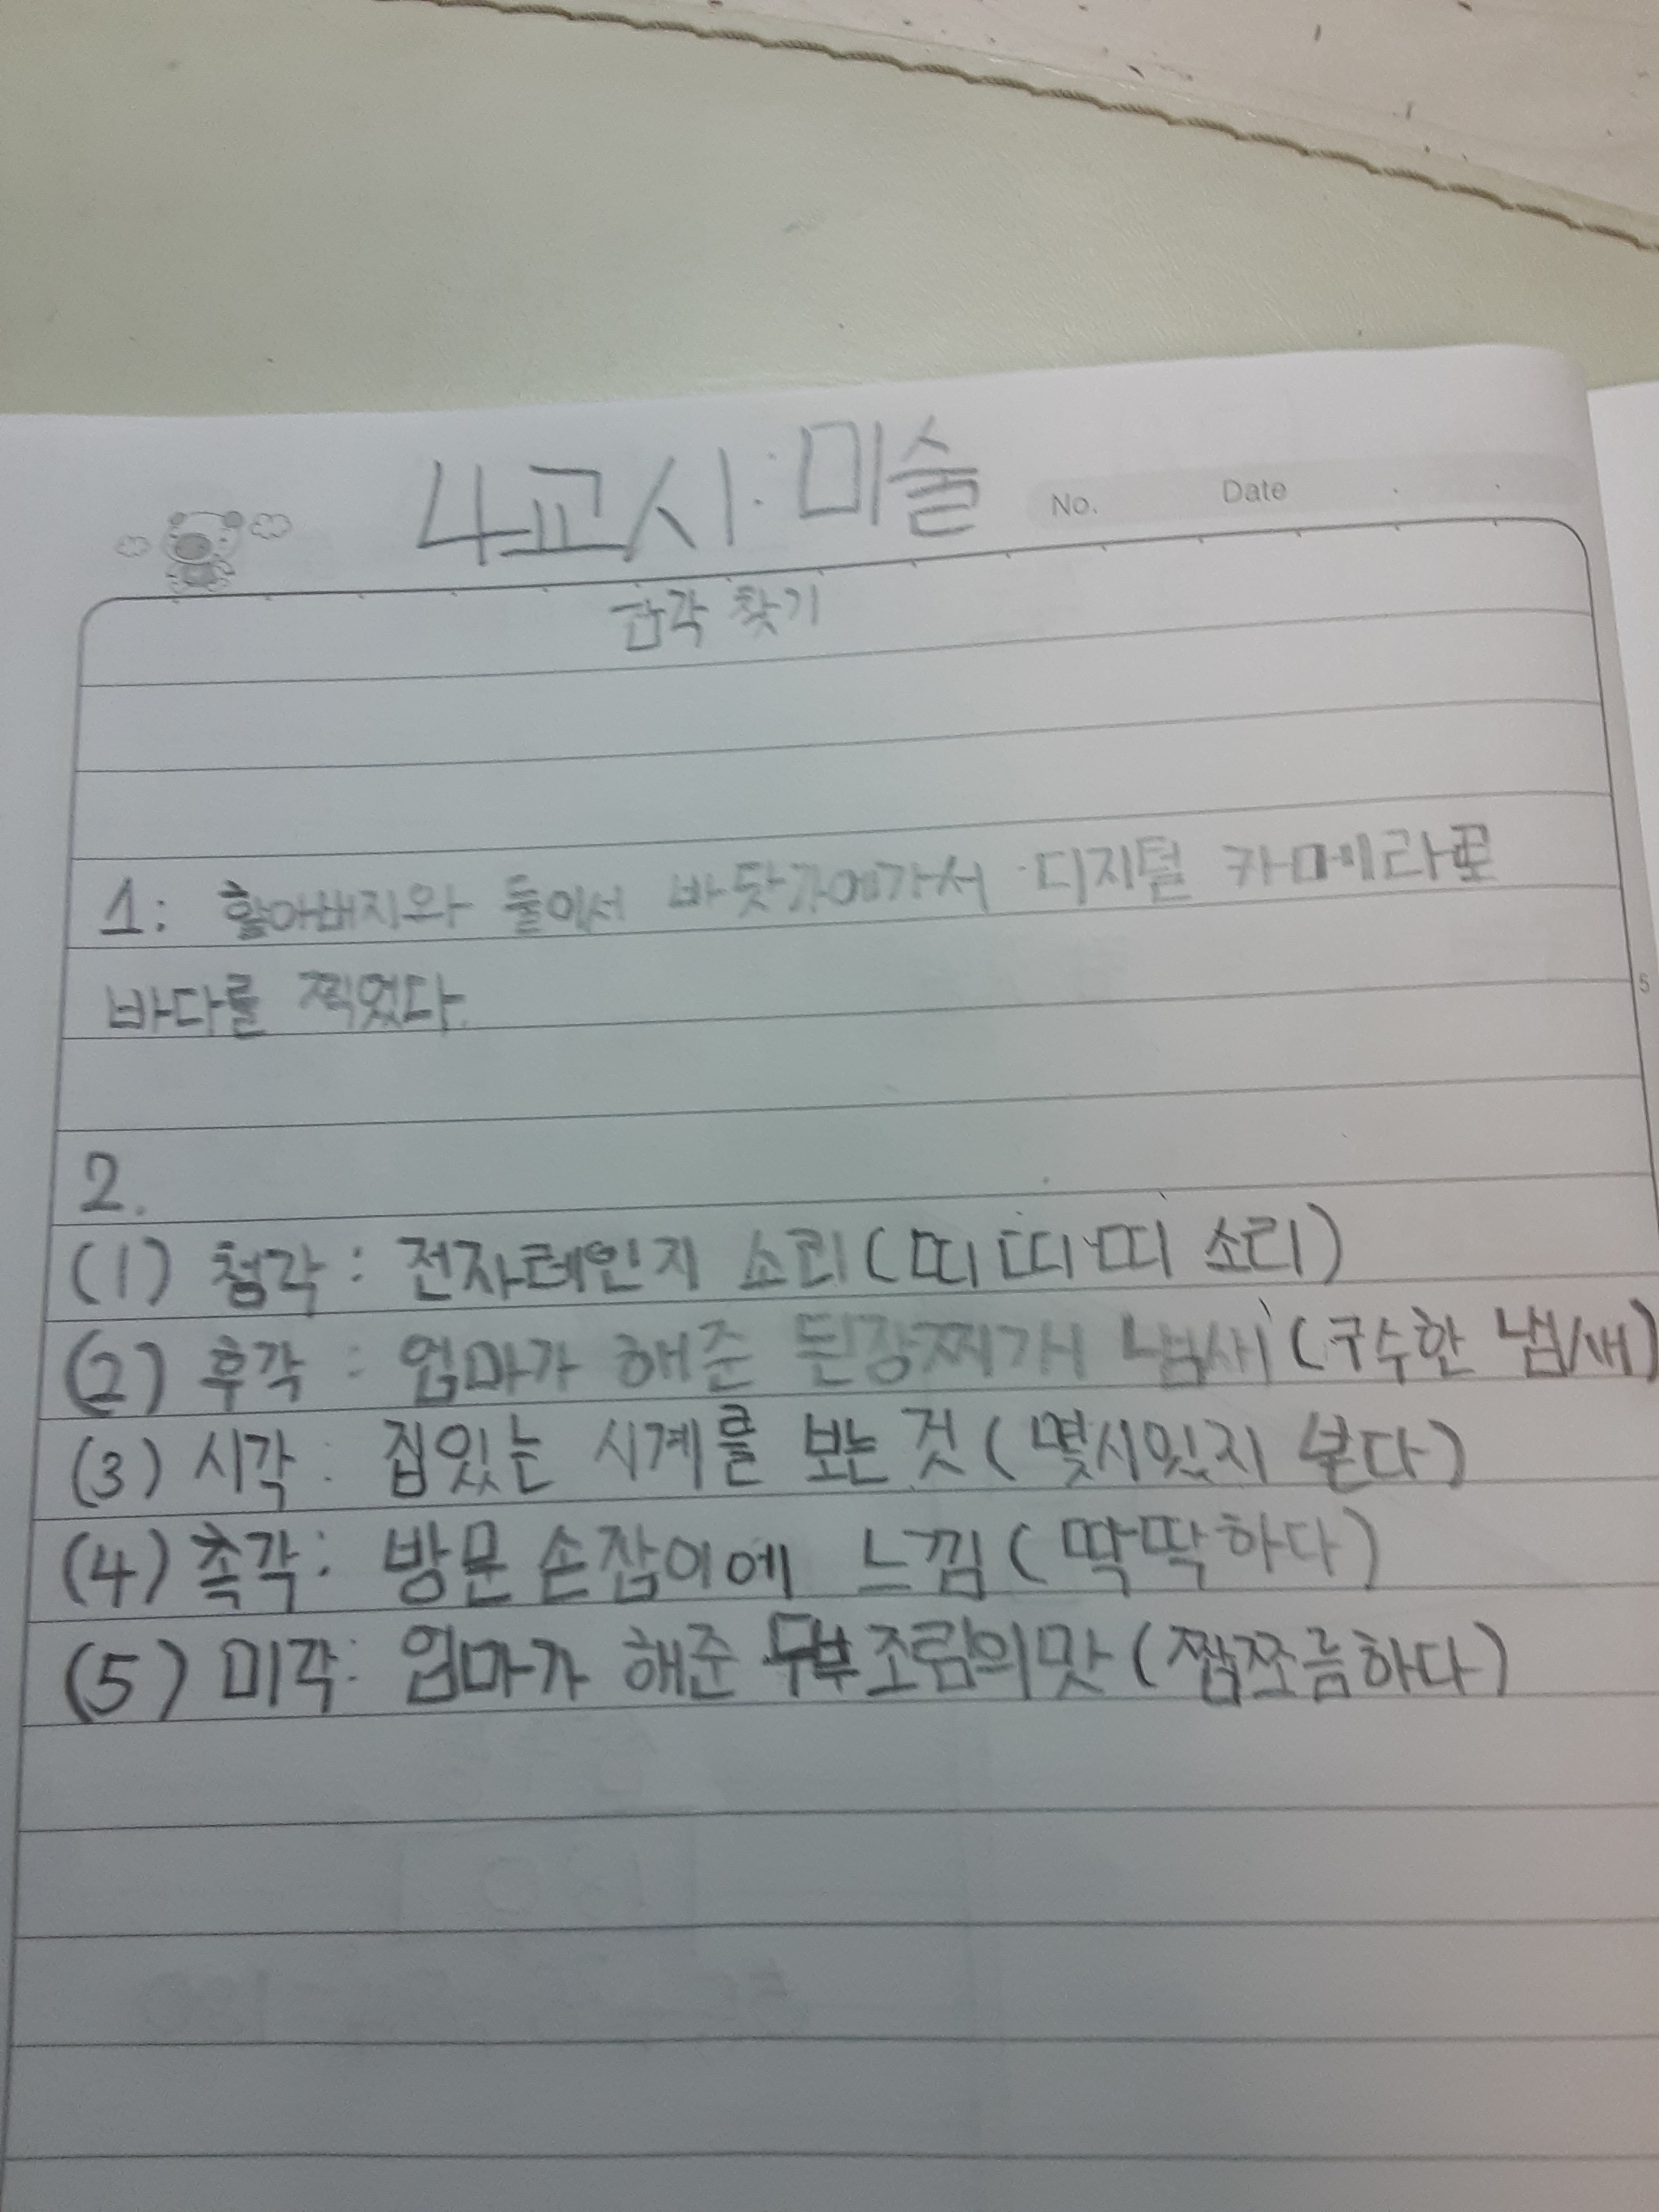 4교시: 미술
No. Date
감각 찾기
1: 할아버지와 둘이서 바닷가에가서 디지털 카메라로
바다를 찍었다.
5
2.
(1) 청각: 전자레인지 소리(띠띠띠 소리)
(2) 후각: 엄마가 해준 된장찌개 냄새(구수한 냄새)
(3) 시각: 집있는 시계를 보는 것(몇시있지 본다)
(4) 촉각: 방문 손잡이에 느낌(딱딱하다)
(5) 미각: 엄마가 해준 두부조림의맛(짭쪼름하다)